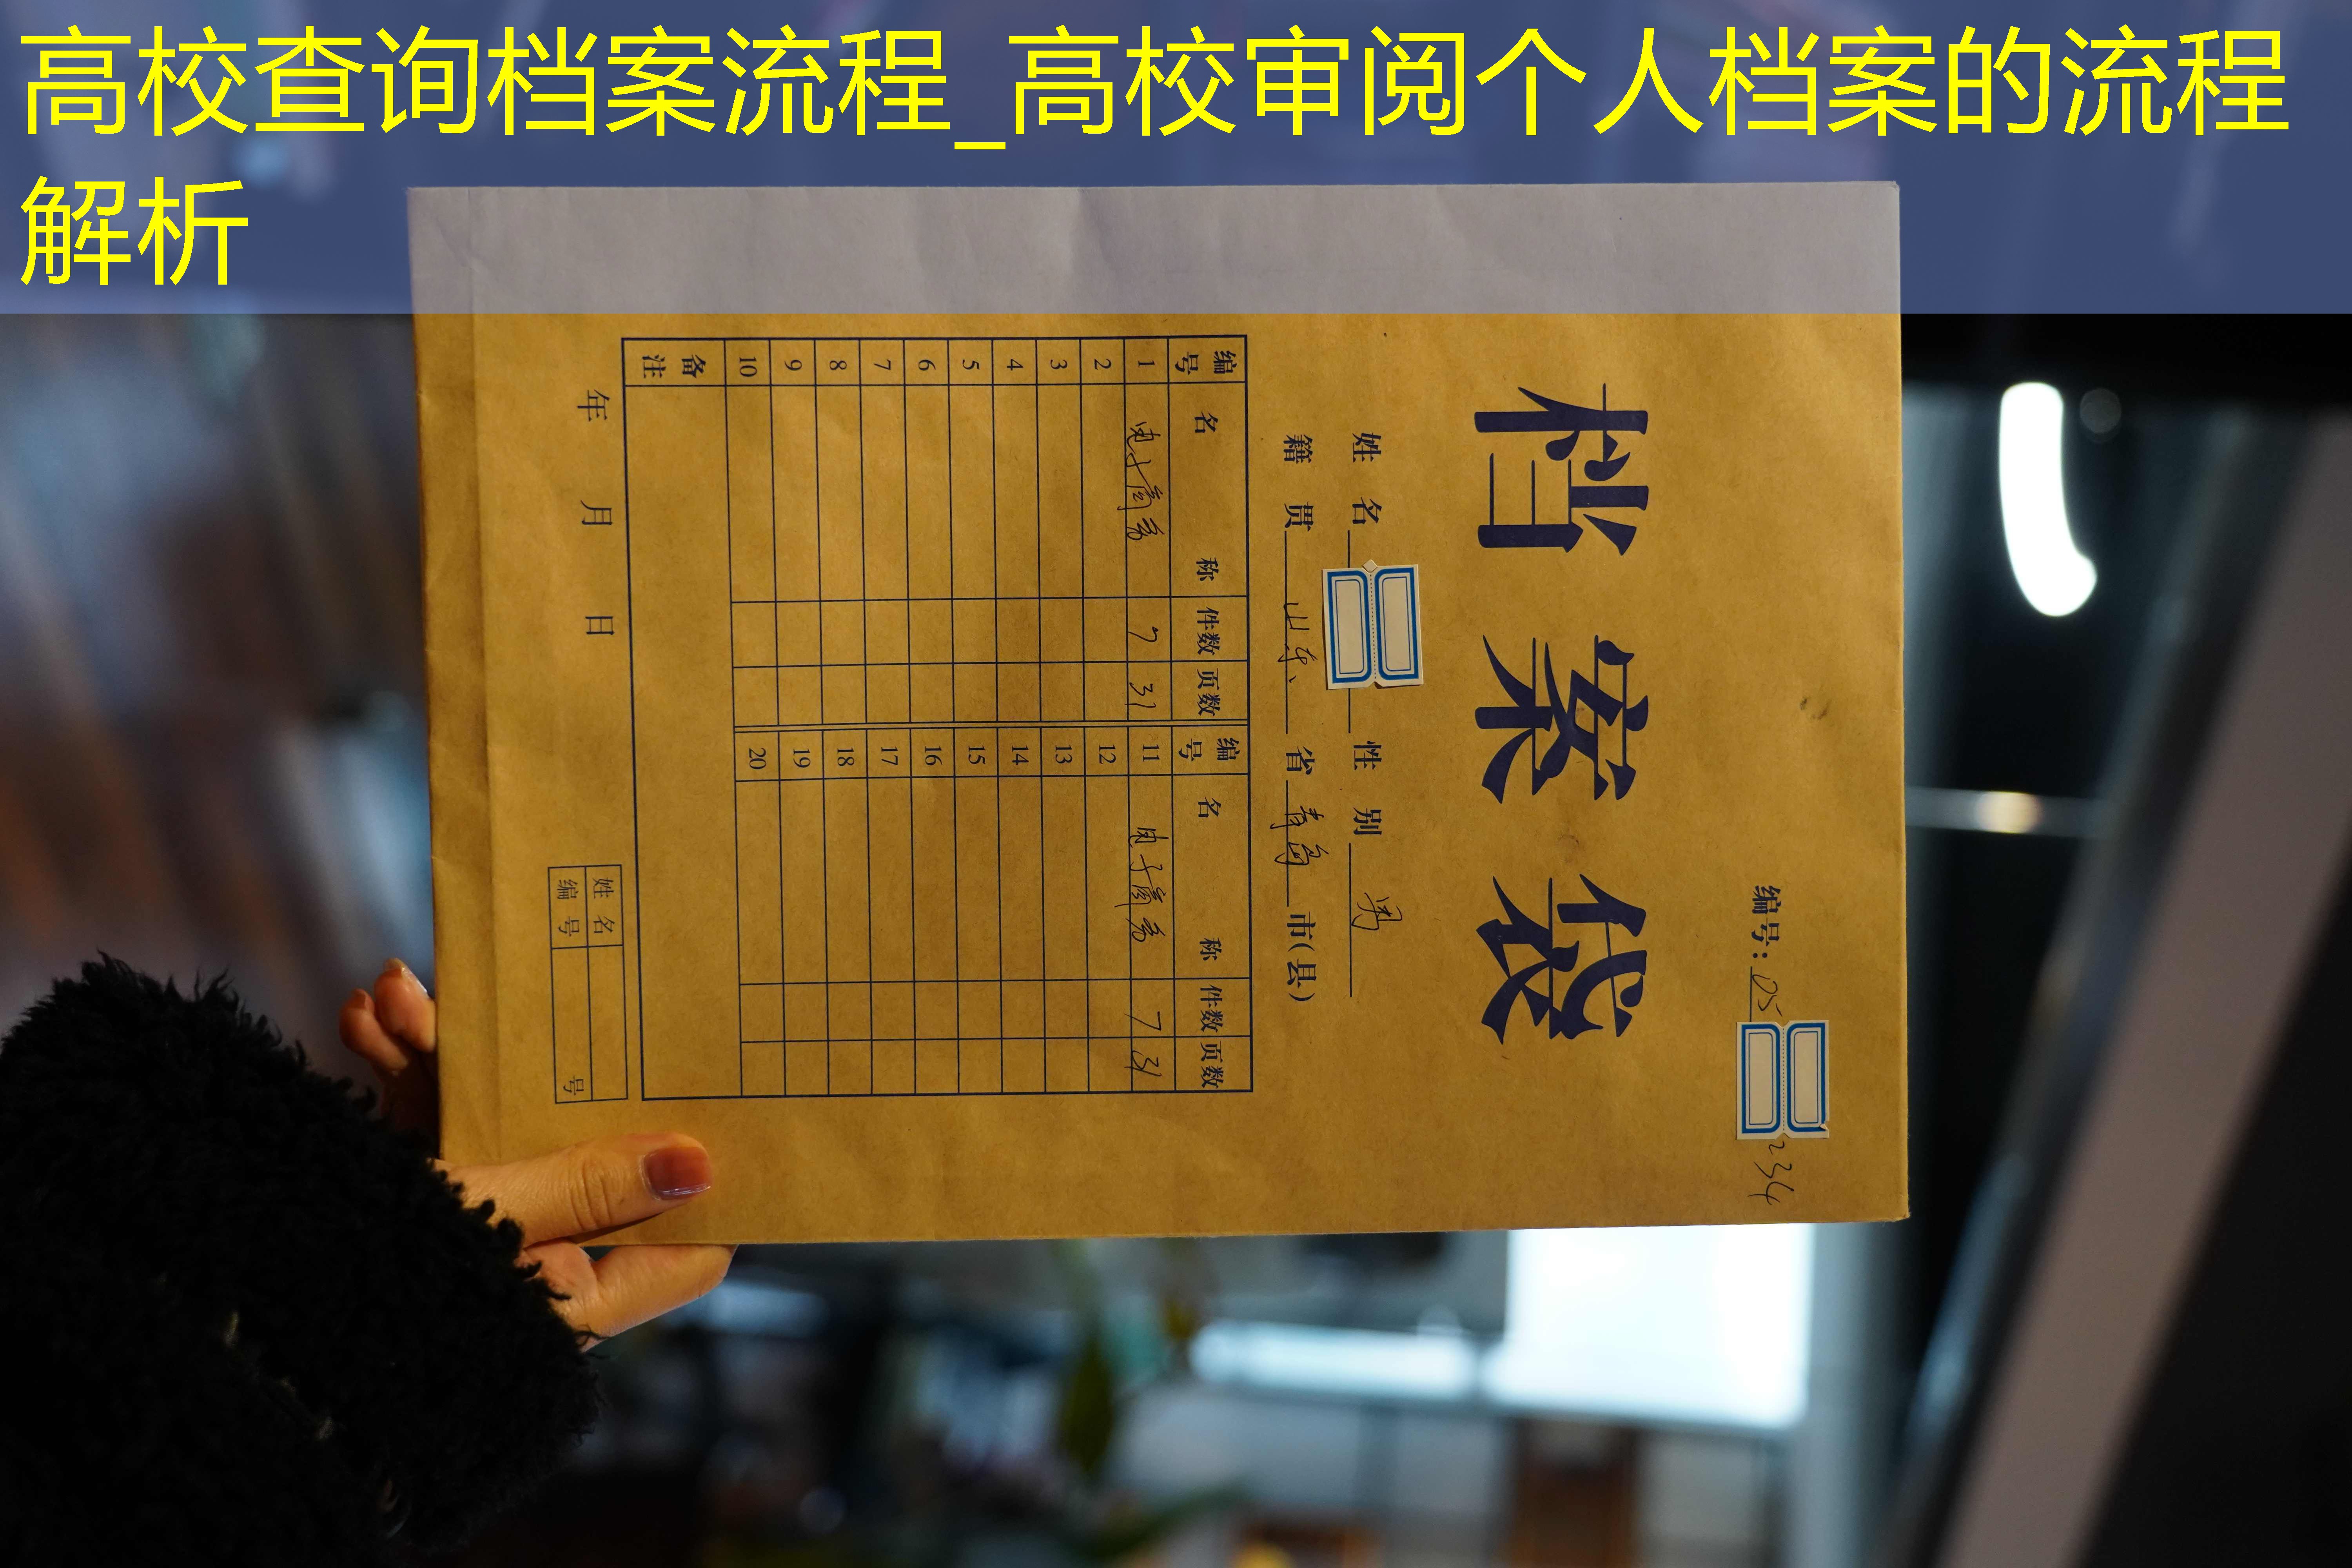 高校查询档案流程_高校审阅个人档案的流程
解析
编号：05
234
档案袋
姓名 性别 男
籍贯 山东 省 青岛 市(县)
编号 名称 件数 页数 编号 名称 件数 页数
1 电子商务 7 31 11 电子商务 7 31
2 12
3 13
4 14
5 15
6 16
7 17
8 18
9 19
10 20
备注
年 月 日
姓名
编号 号